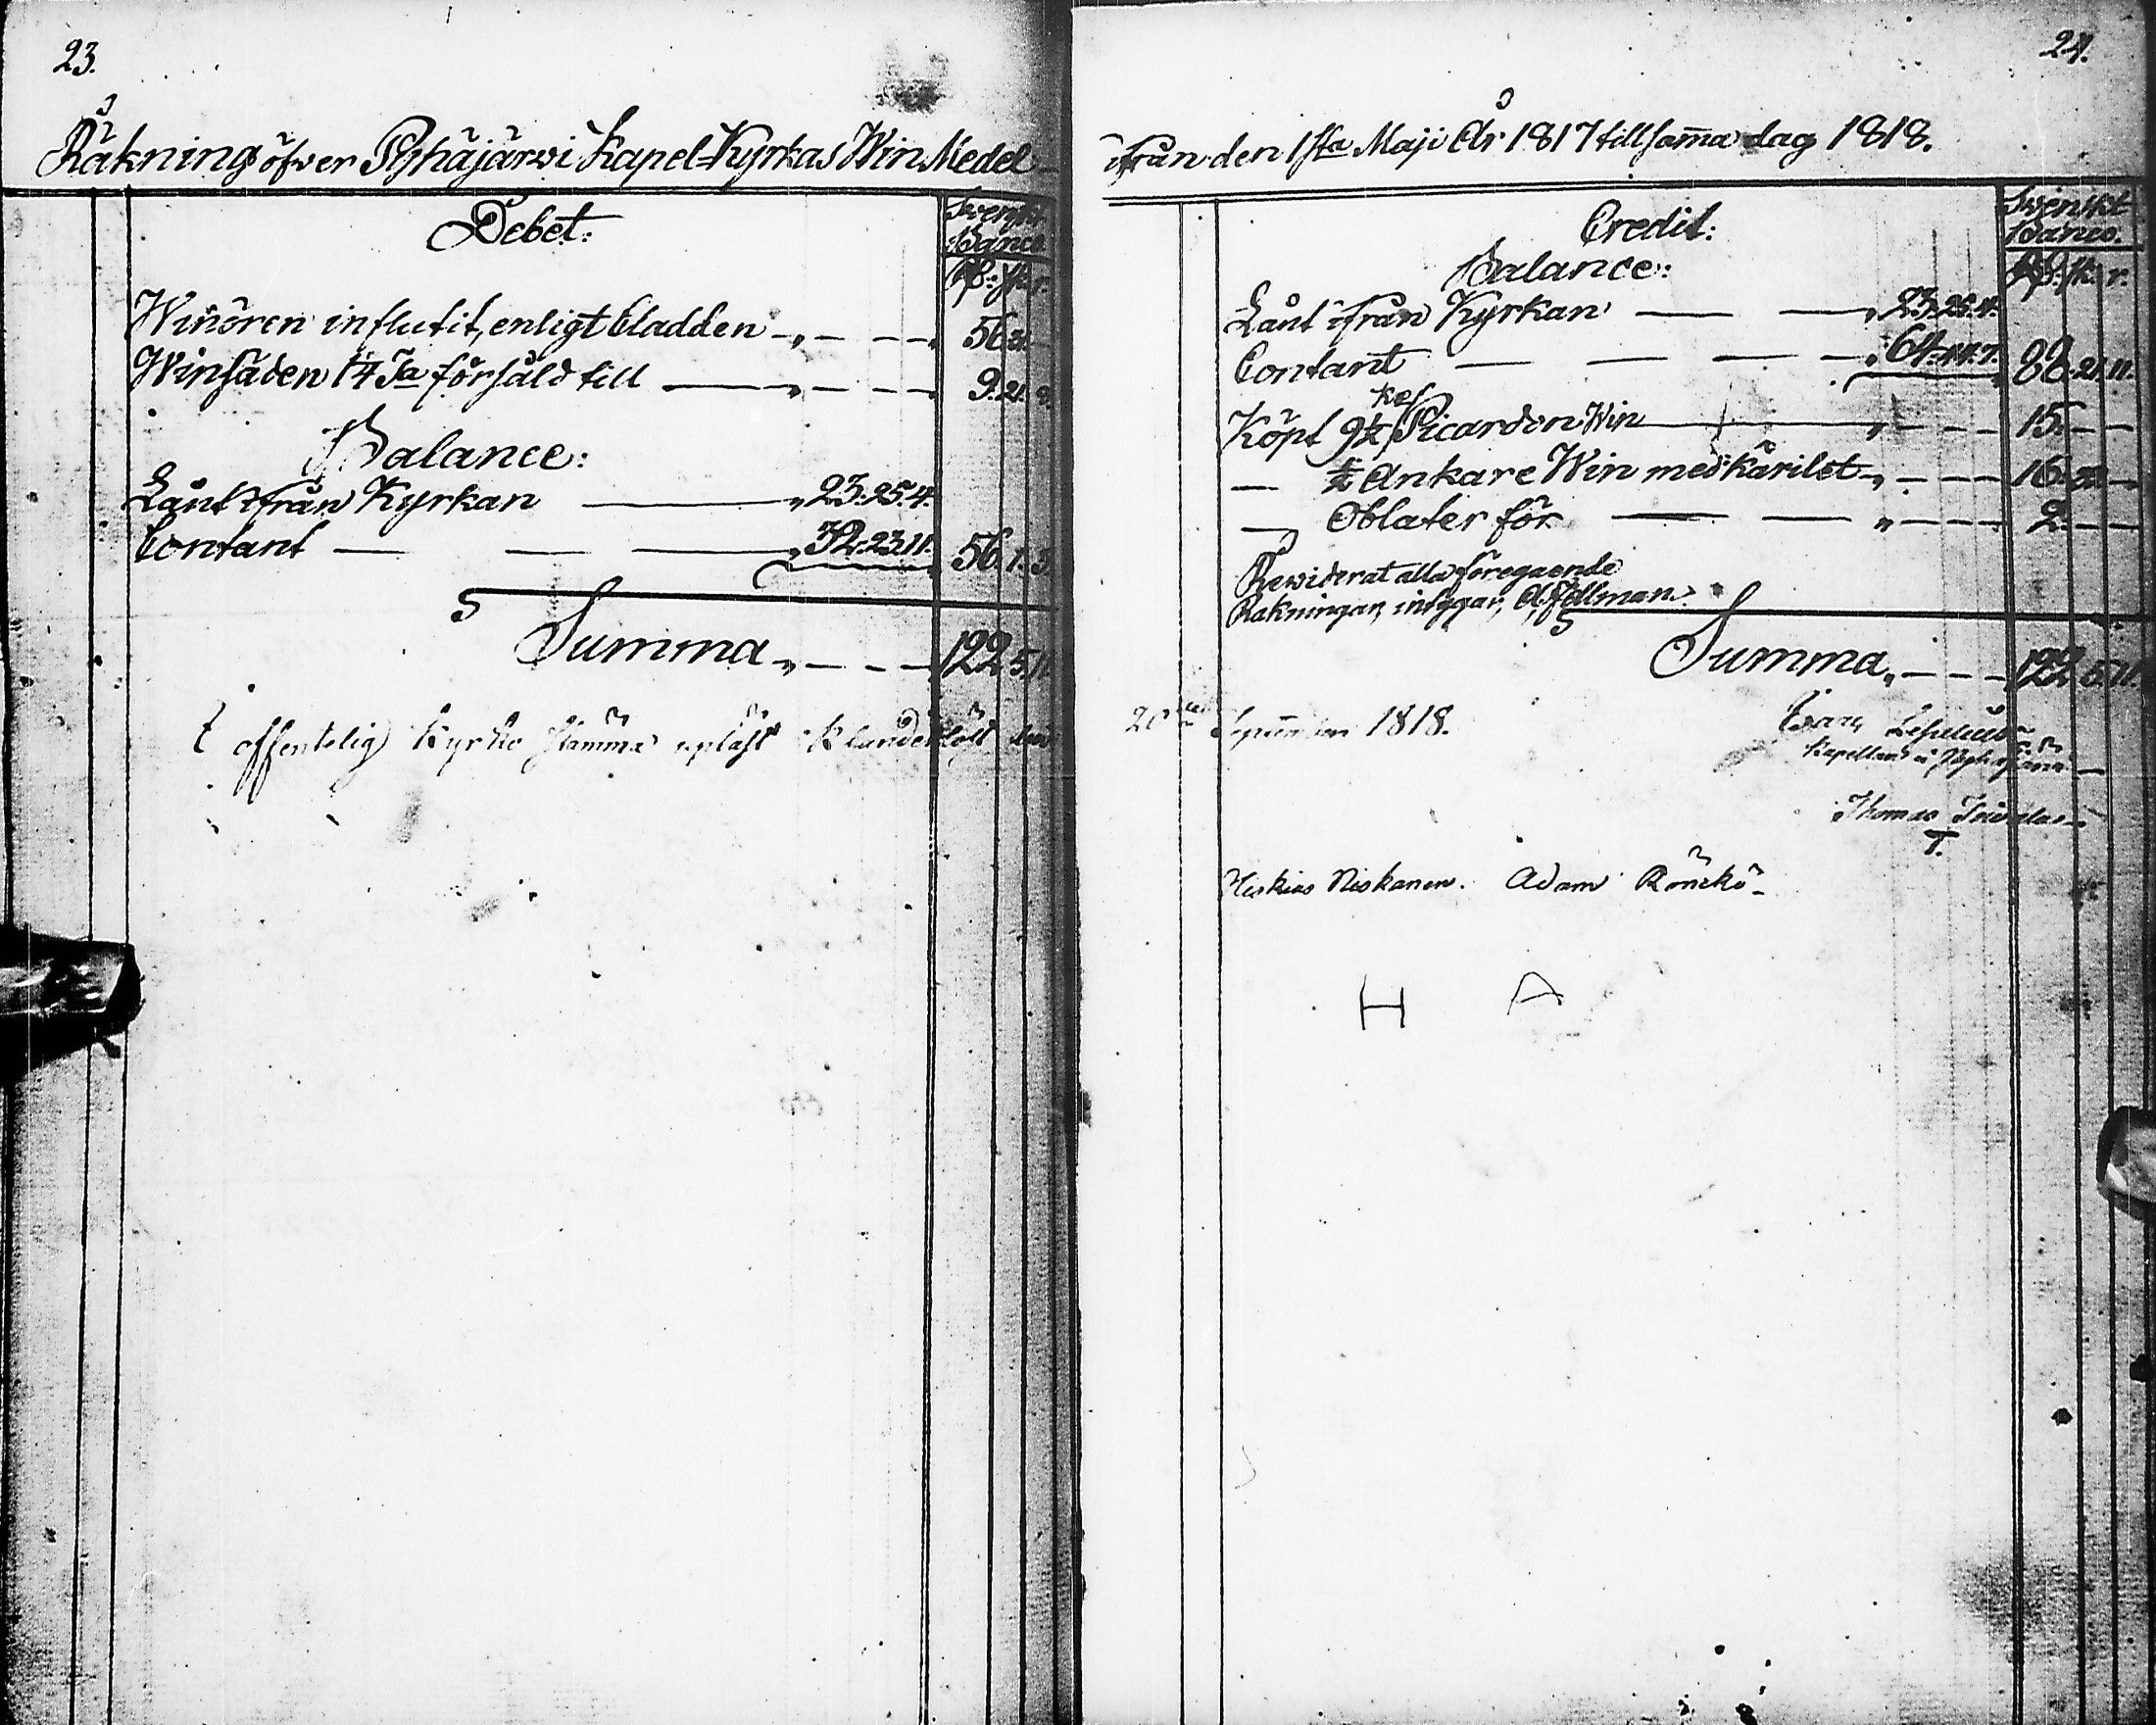 23.
Räkning öfwer Pyhäjärwi Kapel-Kyrkas Win Medel
Debet:
Svenskt
Banco
Rß: sk. r.
Winören influtit, enligt Cladden 56
Winsäden 14 Ta försåld till 9. 21. 9.
Balance:
Lånt ifrån Kyrkan 23. 25. 4.
Contant 32. 23. 11. 56. 1. 3.
Summa 122. 5. 11.
offentelig Kyrko stämma upläst Klanderlöst
24.
ifrån den 1sta Maji År 1817 till samma dag 1818.
Credit:
Swenskt
Banco.
Rß: sk. r.
Balance:
Lånt ifrån Kyrkan 23. 25. 4.
Contant 64. 44. 7. 88. 21. 11.
Köpt 9½ kes Picardon Win 15.
— ½ Ankare Win med kärilet 16.
— Oblater för 2.
Rewiderat alla föregaende
Räkningar, intygar, Fellman.
Summa 122. 5. 11.
20 September 1818.
Kapellan i
Thomas
T.
Heskias Niskanen. Adam Rönckö
H A